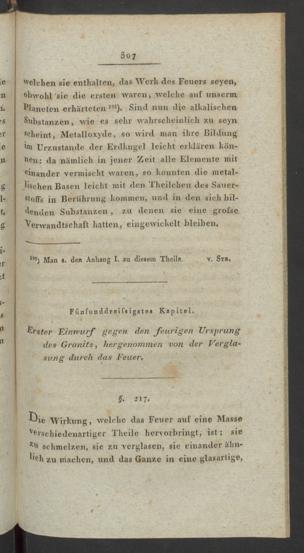 307
welchen sie enthalten, das Werk des Feuers seyen,
obwohl sie die ersten waren, welche auf unserm
Planeten erhärteten ). Sind nun die alkalischen
Substanzen, wie es sehr wahrscheinlich zu seyn
scheint, Metalloxyde, so wird man ihre Bildung
im Urzustande der Erdkugel leicht erklären kön-
nen: da nämlich in jener Zeit alle Elemente mit
einander vermischt waren, so konnten die metal-
lischen Basen leicht mit den Theilchen des Sauer-
stoffs in Berührung kommen, und in den sich bil-
denden Substanzen, zu denen sie eine große
Verwandtschaft hatten, eingewickelt bleiben.
) Man s. den Anhang I. zu diesem Theile. v. Str.
Fünfunddreissigstes Kapitel.
Erster Einwurf gegen den feurigen Ursprung
des Granits, hergenommen von der Vergla-
sung durch das Feuer.
§. 217.
Die Wirkung, welche das Feuer auf eine Masse
verschiedenartiger Theile hervorbringt, ist: sie
zu schmelzen, sie zu verglasen, sie einander ähn-
lich zu machen, und das Ganze in eine glasartige,